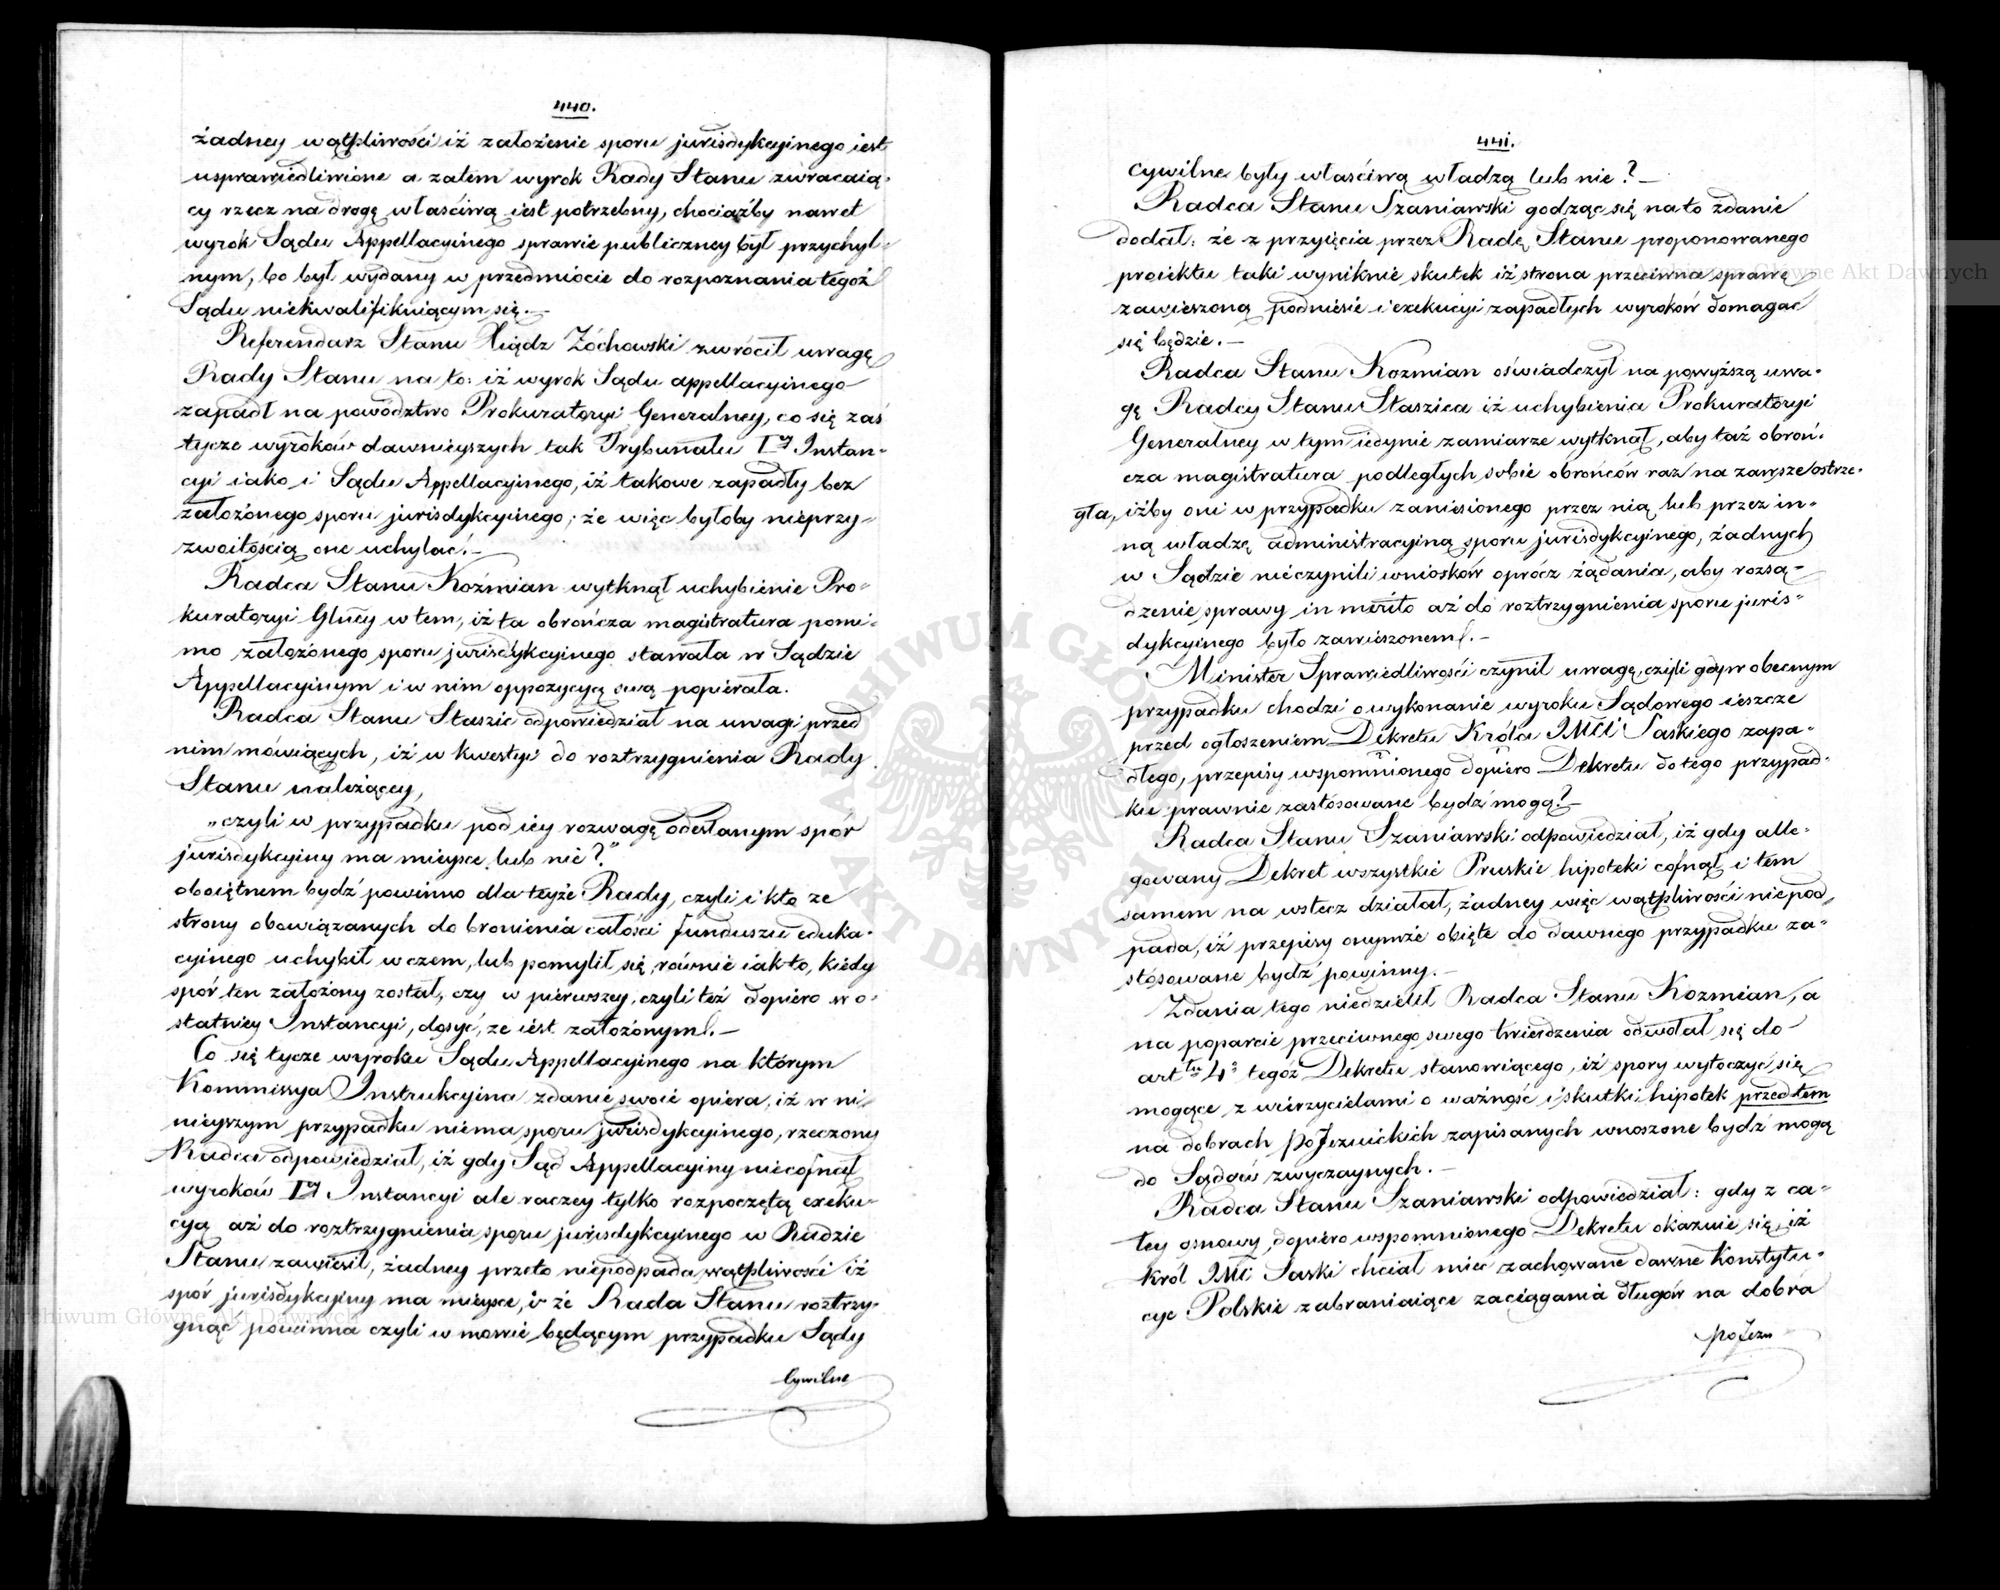 440.
żadney wątpliwości iż założenie sporu jurisdykcyinego iest
usprawiedliwione a zatem wyrok Rady Stanu zwracaią-
cy rzecz na drogę właściwą iest potrzebny, chociażby nawet
wyrok Sądu Appellacyinego sprawie publiczney był przychyl-
nym, bo był wydany w przedmiocie do rozpoznania tegoż
Sądu niekwalifikuiącym się.—
Referendarz Stanu Xiądz Żóchowski zwrócił uwagę
Rady Stanu na to: iż wyrok Sądu appellacyinego
zapadł na powództwo Prokuratoryi Generalney, co się zaś
tycze wyroków dawnieyszych tak Trybunału Iey Instan-
cyi iako i Sądu Appellacyinego, iż takowe zapadły bez
założonego sporu jurisdykcyinego; że więc byłoby nieprzy-
zwoitością one uchylać.—
Radca Stanu Koźmian wytknął uchybienie Pro-
kuratoryi Glney w tem, iż ta obrończa magistratura pomi-
mo założonego sporu jurisdykcyinego stawała w Sądzie
Appellacyinym i w nim oppozycyą swą popierała.
Radca Stanu Staszic odpowiedział na uwagi przed
nim mówiących, iż w kwestyi do roztrzygnienia Rady
Stanu należącey,
„czyli w przypadku pod iey rozwagę odesłanym spór
jurisdykcyiny ma mieysce lub nie?"
oboiętnem bydź powinno dla teyże Rady, czyli i kto ze
strony obowiązanych do bronienia całości funduszu eduka-
cyinego uchybił w czem, lub pomylił się, równie iak to, kiedy
spór ten założony został, czy w pierwszey, czyli też dopiero w o-
statniey Instancyi, dosyć, że iest założonym.—
Co się tycze wyroku Sądu Appellacyinego na którym
Kommissya Instrukcyina zdanie swoie opiera, iż w ni-
nieyszym przypadku niema sporu jurisdykcyinego, rzeczony
Radca odpowiedział, iż gdy Sąd Appellacyiny niecofnął
wyroków Iey Instancyi ale raczey tylko rozpoczętą exeku-
cyą aż do roztrzygnienia sporu jurisdykcyinego w Radzie
Stanu zawiesił, żadney przeto niepodpada wątpliwości iż
spór jurisdykcyiny ma mieysce, i że Rada Stanu roztrzy-
gnąć powinna czyli w mowie będącym przypadku Sądy
Cywilne
441.
cywilne były właściwą władzą lub nie?—
Radca Stanu Szaniawski godząc się na to zdanie
dodał: że z przyięcia przez Radę Stanu proponowanego
proiektu taki wyniknie skutek iż strona przeciwna sprawę
zawieszoną podniesie i exekucyi zapadłych wyroków domagać
się będzie.—
Radca Stanu Kozmian oświadczył na powyższą uwa-
gę Radcy Stanu Staszica iż uchybienia Prokuratoryi
Generalney w tym iedynie zamiarze wytknął, aby taż obroń-
cza magistratura podległych sobie obrońców raz na zawsze ostrze-
gła, iżby oni w przypadku zaniesionego przez nią lub przez in-
ną władzę administracyiną sporu jurisdykcyinego, żadnych
w Sądzie nieczynili wniosków oprócz żądania, aby rozsą-
dzenie sprawy in merito aż do roztrzygnienia sporu juris-
dykcyinego było zawieszonem.—
Minister Sprawiedliwości czynił uwagę, czyli gdy w obecnym
przypadku chodzi o wykonanie wyroku Sądowego ieszcze
przed ogłoszeniem Dekretu Króla JMCi Saskiego zapa-
dłego, przepisy wspomnionego dopiero Dekretu do tego przypad-
ku prawnie zastosowane bydź mogą?—
Radca Stanu Szaniawski odpowiedział, iż gdy alle-
gowany Dekret wszystkie Pruskie hipoteki cofnął i tem
samem na wstecz działał, żadney więc wątpliwości niepod-
pada, iż przepisy onymże obięte do dawnego przypadku za-
stosowane bydź powinny.—
Zdania tego niedzielił Radca Stanu Kozmian, a
na poparcie przeciwnego swego twierdzenia odwołał się do
arttu 4o tegoż Dekretu stanowiącego, iż spory wytoczyć się
mogące z wierzycielami o ważność i skutki hipotek przedtem
na dobrach poJezuickich zapisanych wnoszone bydź mogą
do Sądów zwyczaynych.—
Radca Stanu Szaniawski odpowiedział: gdy z ca-
łey osnowy dopiero wspomnionego Dekretu okazuie się, iż
Król JMci Saski chciał mieć zachowane dawne Konstytu-
cye Polskie zabraniaiące zaciągania długów na dobra
poJezu